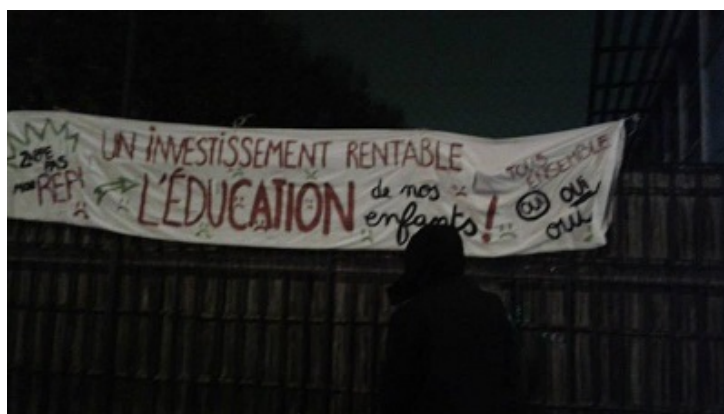 ZAPPE PAS
mon REP!
UN INVESTISSEMENT RENTABLE
L'ÉDUCATION de nos
enfants !
TOUS
ENSEMBLE
OUI OUI
OUI